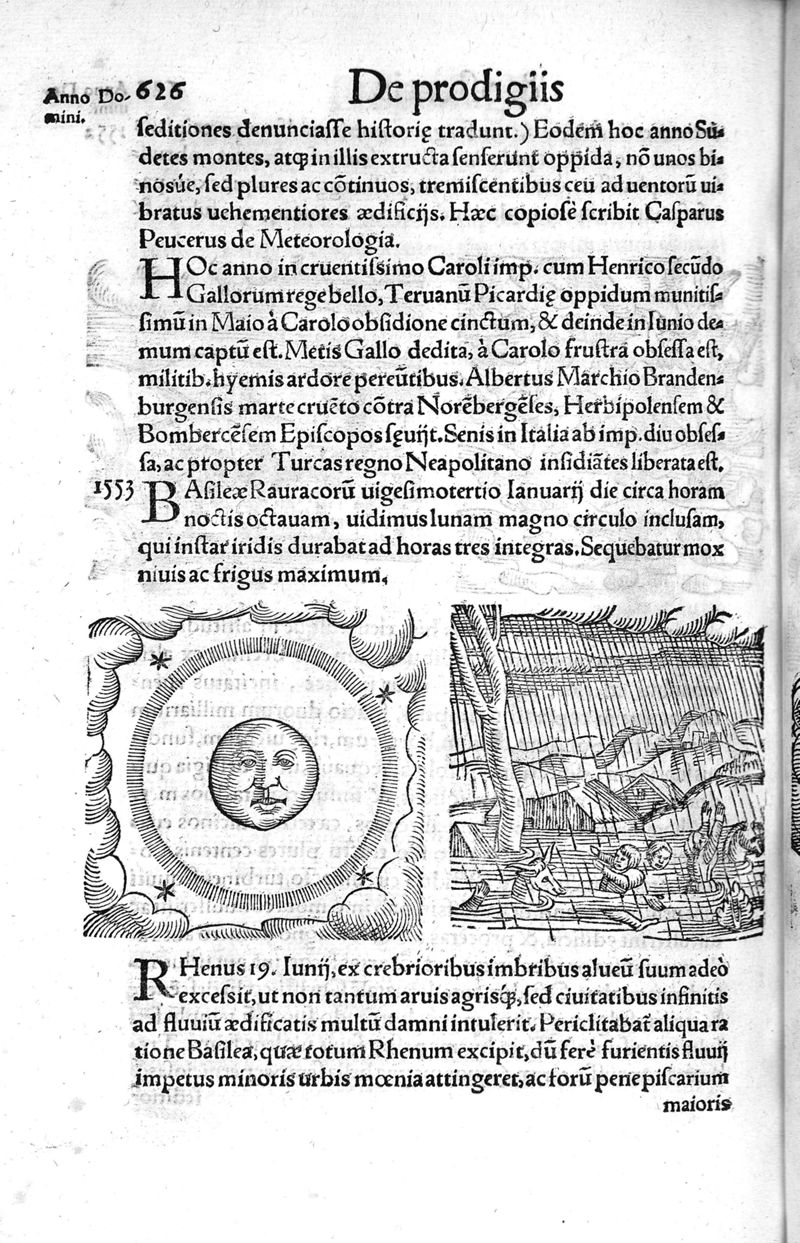 Anno Do-
mini.
626
De prodigiis
ſeditiones denunciaſſe hiſtorię tradunt.) Eodem hoc anno Su-
detes montes, atq; in illis extructa ſenſerunt oppida, nō unos bi-
nosúe, ſed plures ac cōtinuos, tremiſcentibus ceu ad uentorū ui-
bratus uehementiores ædificijs. Hæc copioſè ſcribit Caſparus
Peucerus de Meteorologia.
HOc anno in cruentiſsimo Caroli imp. cum Henrico ſecūdo
Gallorum rege bello, Teruanū Picardię oppidum munitiſ-
ſimū in Maio à Carolo obſidione cinctum, & deinde in Iunio de-
mum captū eſt. Metis Gallo dedita, à Carolo fruſtra obſeſſa eſt,
militib. hyemis ardore pereūtibus. Albertus Marchio Branden-
burgenſis marte cruēto cōtra Norēbergēſes, Herbipolenſem &
Bombercēſem Epiſcopos ſęuijt. Senis in Italia ab imp. diu obſeſ-
ſa, ac propter Turcas regno Neapolitano inſidiātes liberata eſt.
1553 BAſileæ Rauracorū uigeſimotertio Ianuarij die circa horam
noctis octauam, uidimus lunam magno circulo incluſam,
qui inſtar iridis durabat ad horas tres integras. Sequebatur mox
niuis ac frigus maximum.
RHenus 19. Iunij, ex crebrioribus imbribus alueū ſuum adeò
exceſsit, ut non tantum aruis agrisq́;, ſed ciuitatibus infinitis
ad fluuiū ædificatis multū damni intulerit. Periclitabat̃ aliqua ra
tione Baſilea, quæ totum Rhenum excipit, dū ferè furientis fluuij
impetus minoris urbis mœnia attingeret, ac forū pene piſcarium
maioris